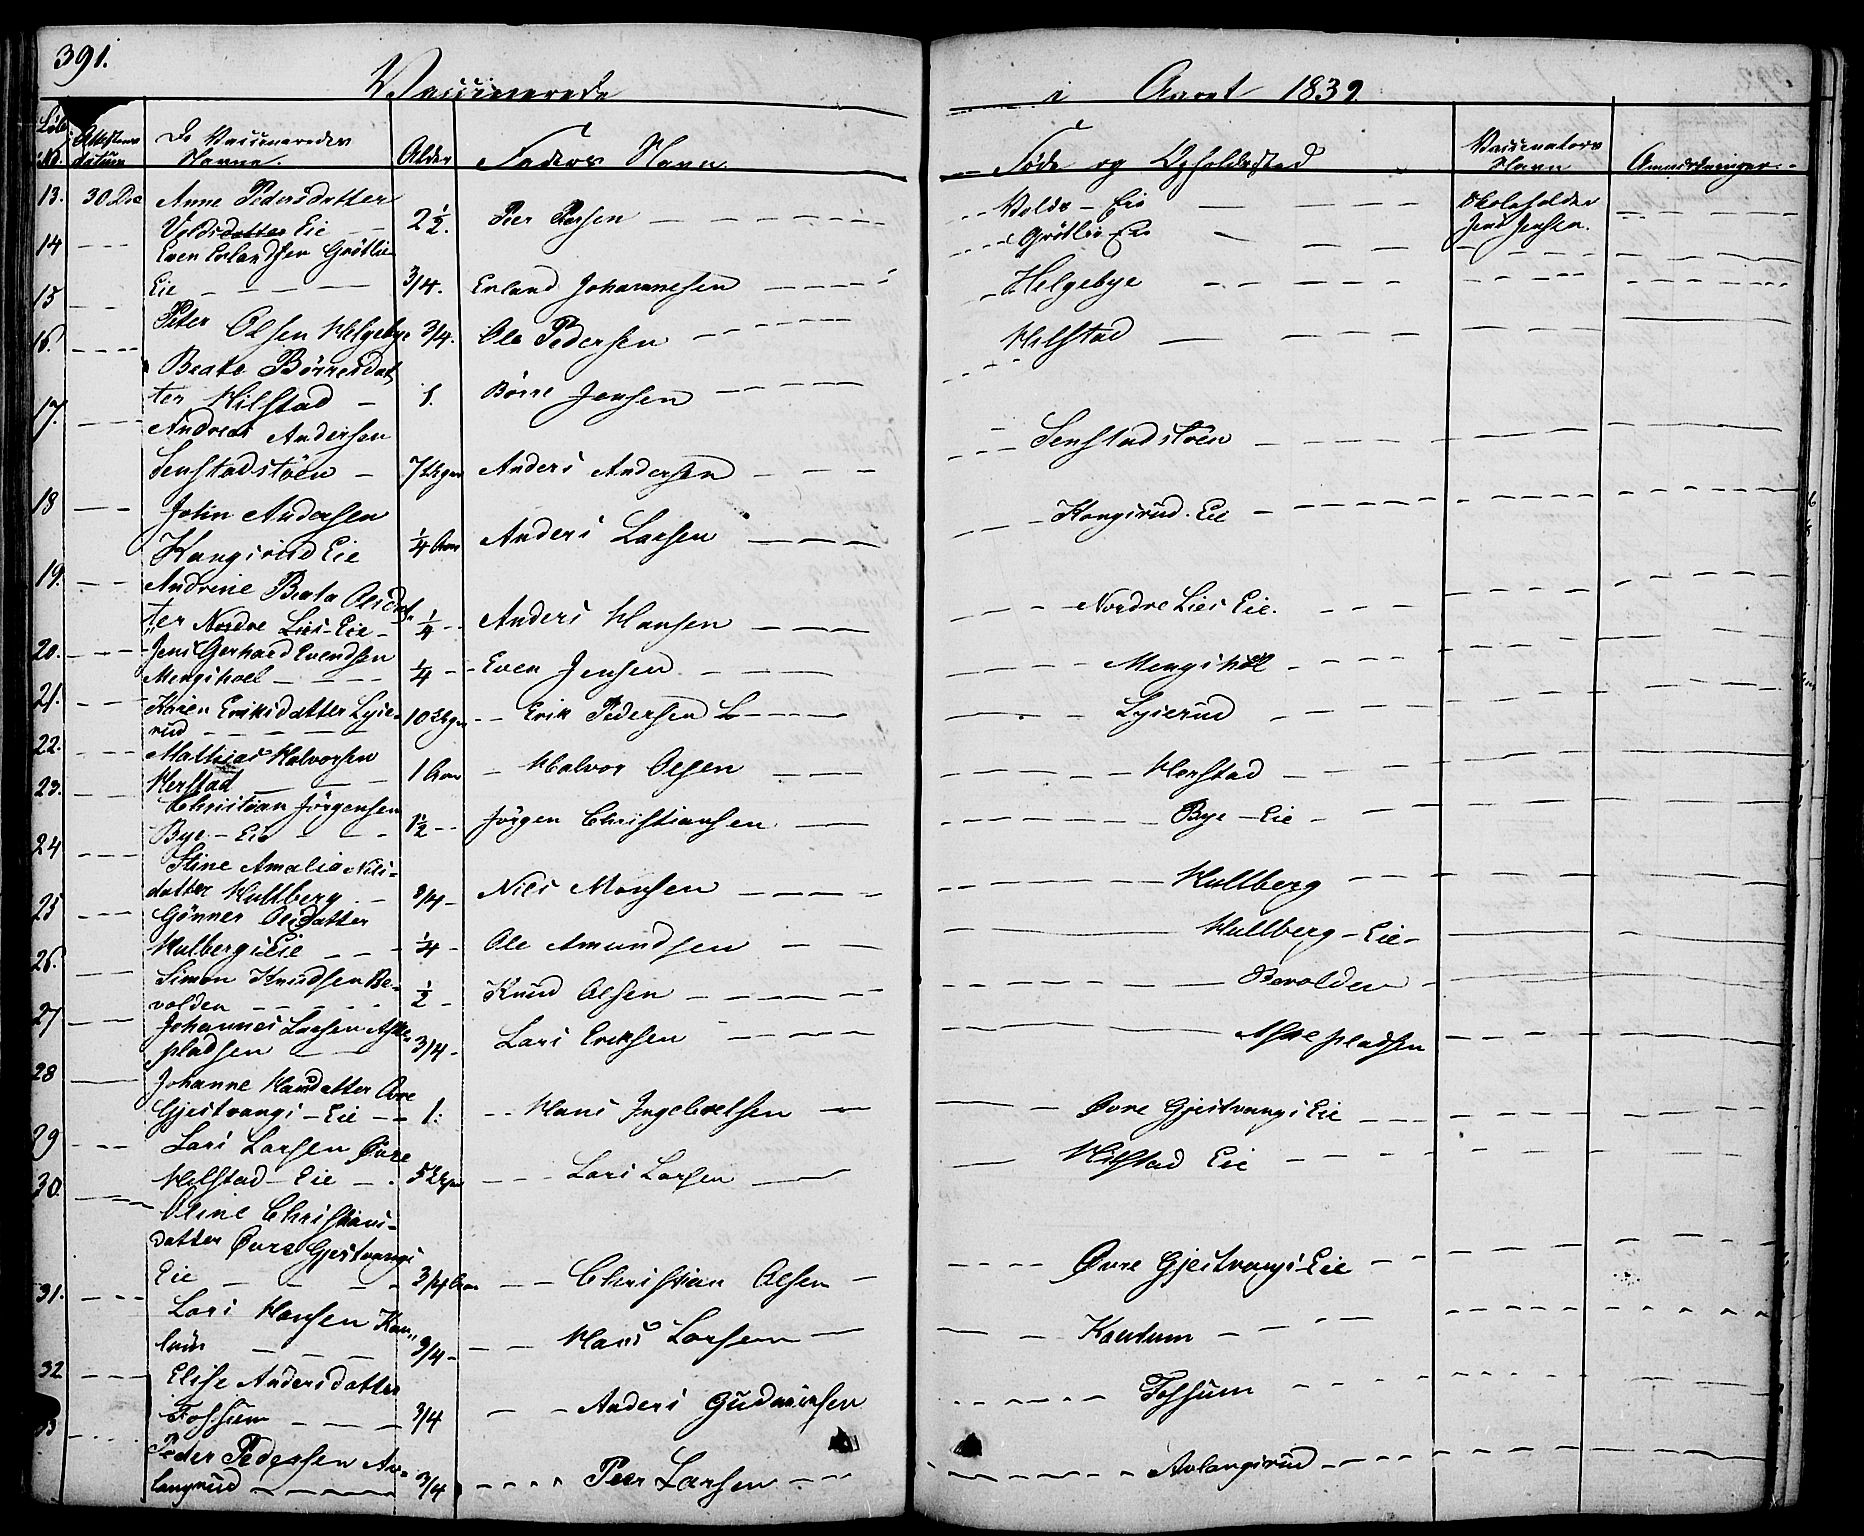 391.
Vaccinerede i Aaret 1839
Løbe No.
Attestens datum
De Vaccineredes Navne.
Alder
Faders Navn
Føde og Opholdssted
Vaccinators Navn
Anmærkninger
13. 30 Dec Anne Pedersdatter 2 1/2. Peer Persen Volds-Eie Skoleholder
Voldsdatter Eie Jens Jensen.
14 Even Erlandsen Grötlie Grötlie Eie
Eie 3/4. Erland Johannesen Helgebye
15 Peter Olsen Helgebye 3/4. Ole Pedersen Hilstad
16. Beate Börresdat
ter Hilstad 1. Börre Jensen
17. Andreas Andersen Senstadstöen
Senstadstöen 7 Uger Anders Andersen
18 John Andersen Kongsrud Eie
Kongsrud Eie 1/4 Aar Anders Larsen
19. Andrine Beata Olsdat Nordre Lies Eie.
ter Nordre Lies-Eie 1/4 Anders Hansen
20. Jens Gerhard Evendsen Mengshoel
Mengshoel 1/4 Even Jensen
21. Karen Eriksdatter Lyse Lyserud
rud 10 Uger Erik Pedersen L
22. Mathias Halvorsen
Herstad 1 Aar Halvor Olsen Herstad
23. Christian Jörgensen Bye-Eie
Bye-Eie 1 1/2 Jörgen Christiansen
24 Stine Amalia Nils=
datter Hullberg 3/4 Nils Monsen Hullberg
25 Gönner Olsdatter
Hulbergs Eie 1/4 Ole Amundsen Hullberg-Eie
26. Simon Knudsen Be=
volden 1/2 Knud Olsen Bevolden
27 Johannes Larsen Aske=
pladsen 3/4 Lars Eriksen Askepladsen
28 Johanne Hansdatter Øvre
Gjestvangs-Eie 1. Hans Ingebretsen Øvre Gjestvangs Eie
29 Lars Larsen Øvre
Hilstad-Eie 5 Uger Lars Larsen Hilstad Eie
30. Oline Christians=
datter Øvre Gjestvangs
Eie 3/4 Aar Christian Olsen Øvre Gjestvangs-Eie
31. Lars Hansen
3/4 Hans Larsen
32 Elise Andersdatter
Fossum 3/4 Anders Gudmunsen Fossum
33 Peder Pedersen Av=
langsrud 3/4 Peer Larsen Avlangsrud